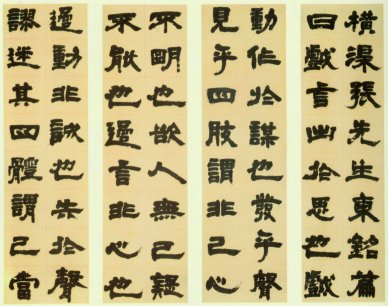 橫渠張先生東銘篇
曰戲言出於思也戲
動作於謀也發乎聲
見乎四肢謂非己心
不明也欲人無己疑
不能也過言非心也
過動非誠也失於聲
謬迷其四體謂己當